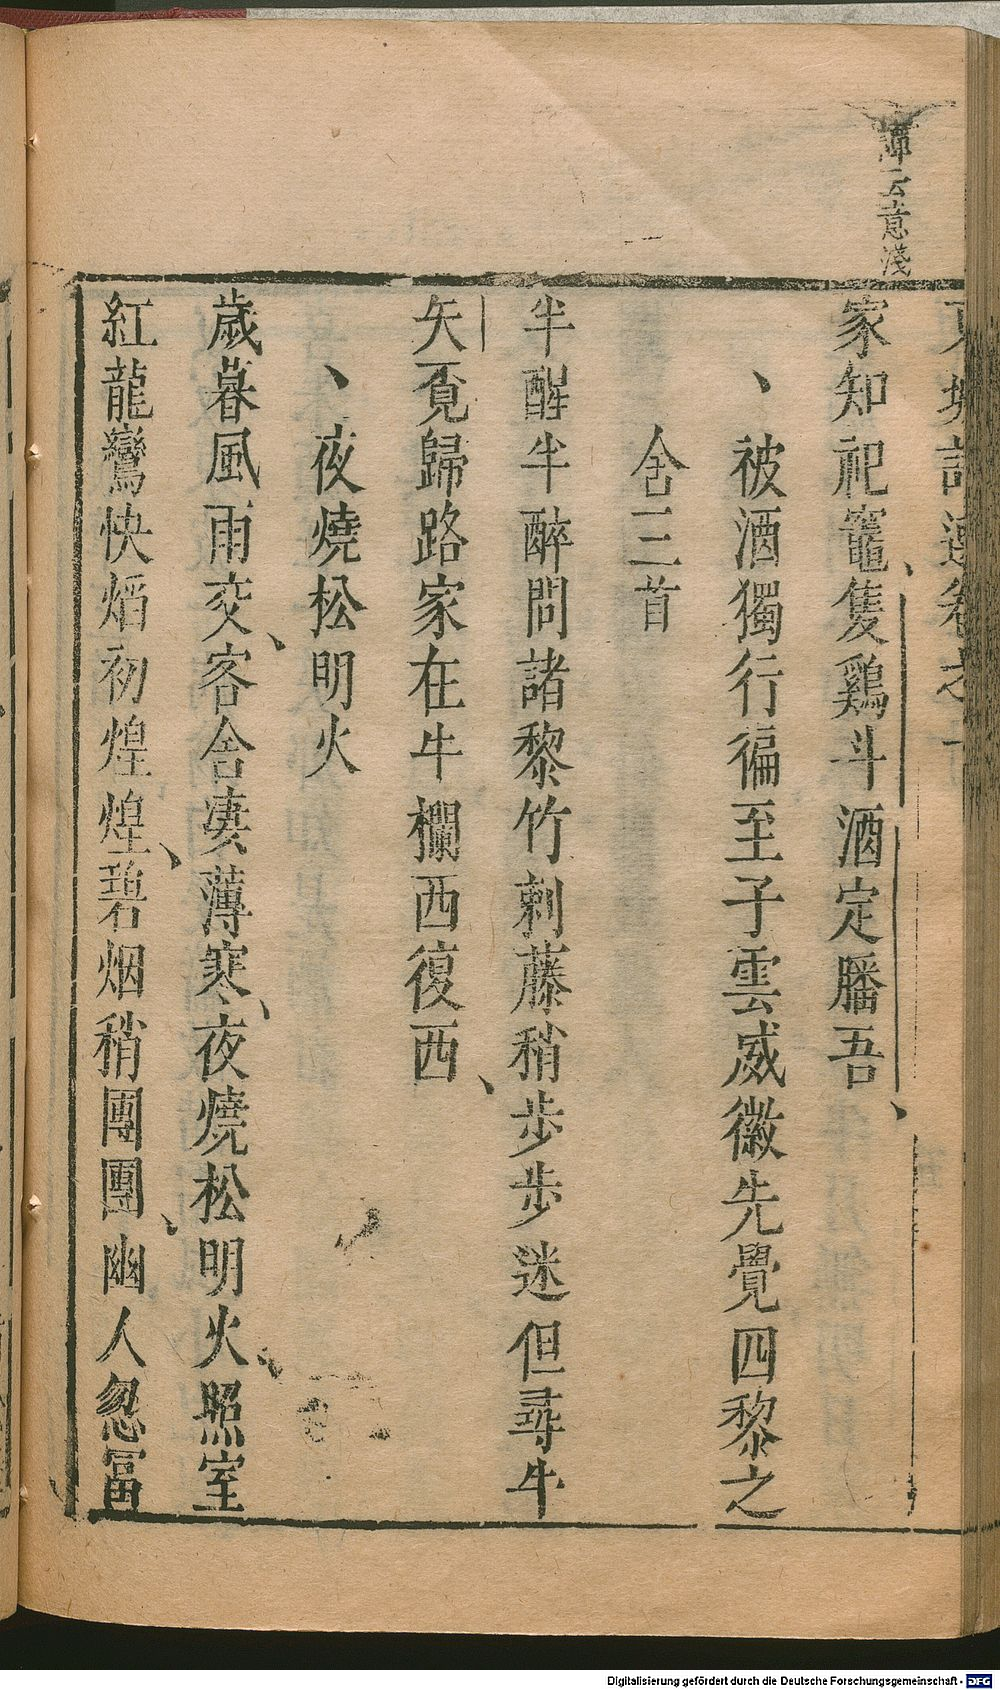 譚云意淺
東坡詩選卷之十
家知祀竈隻鷄斗酒定膰吾
被酒獨行徧至子雲威徽先覺四黎之
舍三首
半醒半醉問諸黎竹刺藤稍步步迷但尋牛
矢覓歸路家在牛欄西復西
夜燒松明火
歲暮風雨交客舍凄薄寒夜燒松明火照室
紅龍鸞快焰初煌煌碧烟稍團團幽人忽冨
Digitalisierung gefördert durch die Deutsche Forschungsgemeinschaft - DFG